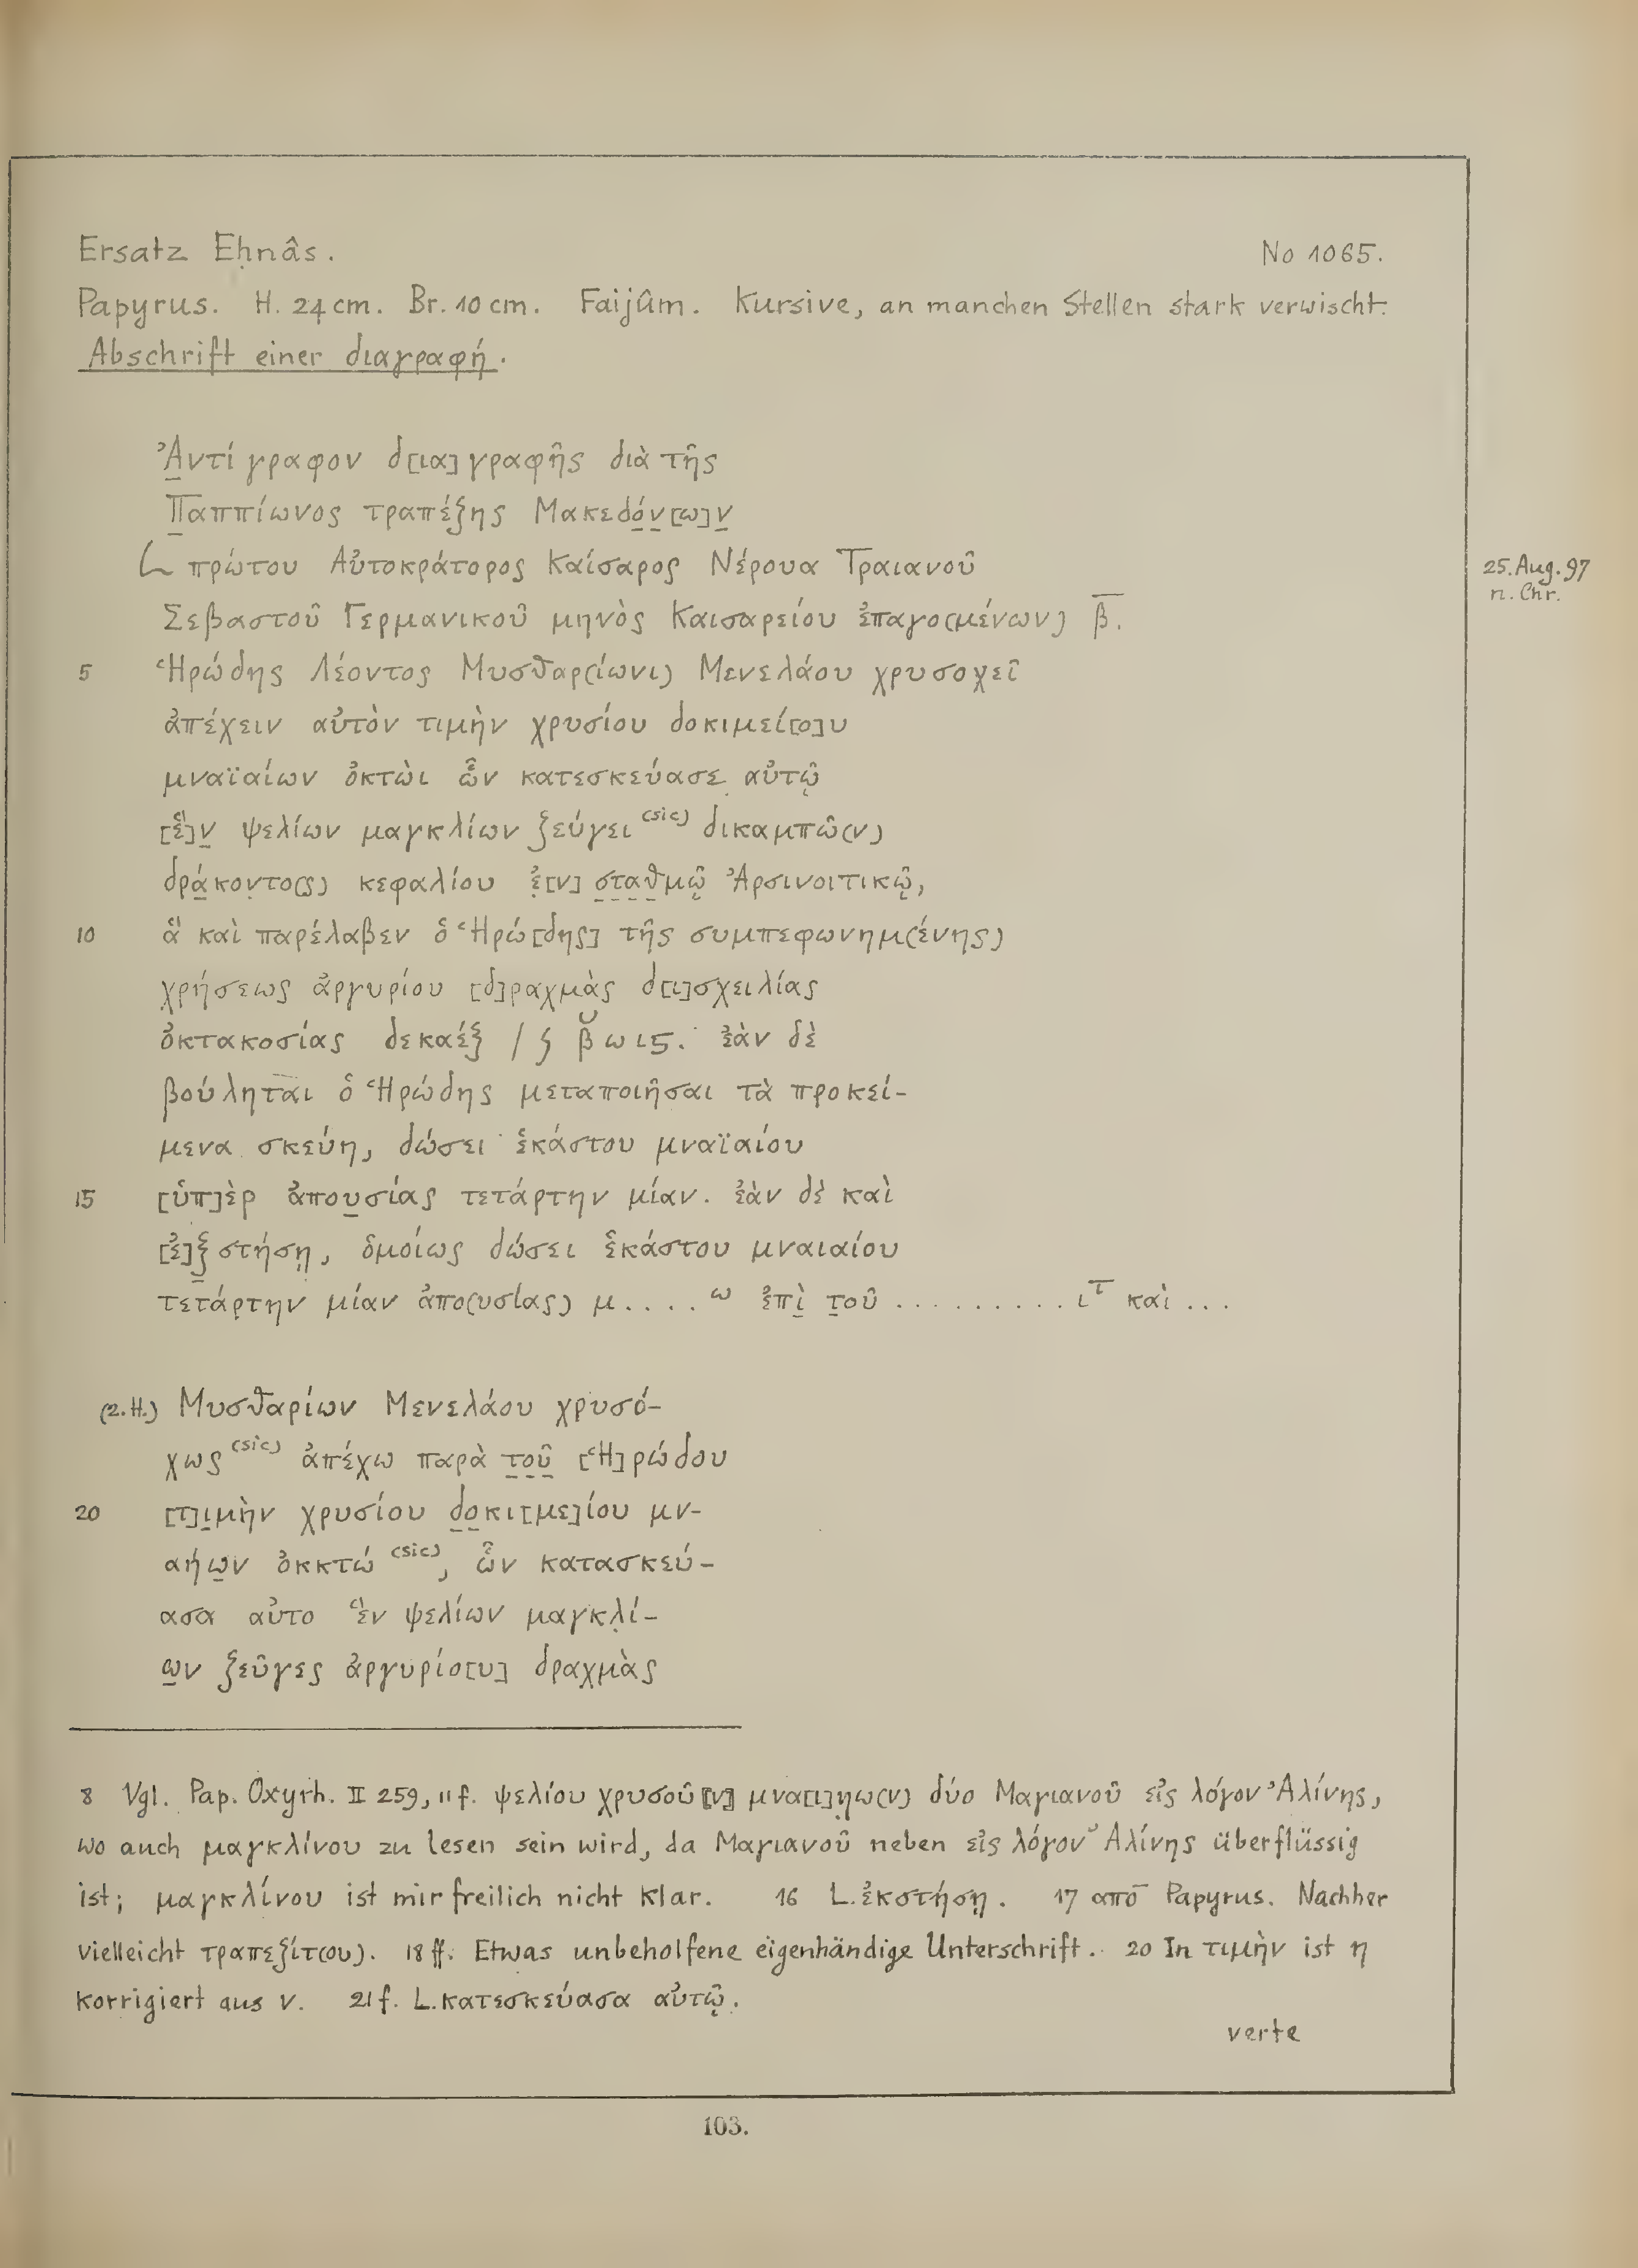 Ersatz Eḥnâs. No 1065.
Papyrus. H. 24 cm. Br. 10 cm. Faijûm. Kursive, an manchen Stellen stark verwischt.
Abschrift einer διαγραφή.
Ἀντίγραφον δ[ια]γραφῆς διὰ τῆς
Παππίωνος τραπέζης Μακεδόν[ω]ν
L πρώτου Αὐτοκράτορος Καίσαρος Νέρουα Τραιανοῦ
25. Aug. 97
n. Chr.
Σεβαστοῦ Γερμανικοῦ μηνὸς Καισαρείου ἐπαγο(μένων) β̅.
5 Ἡρώδης Λέοντος Μυσθαρ(ίωνι) Μενελάου χρυσοχεῖ
ἀπέχειν αὐτὸν τιμὴν χρυσίου δοκιμεί[ο]υ
μναϊαίων ὀκτὼι ὧν κατεσκεύασε αὐτῷ
[ἓ]ν ψελίων μαγκλίων ζεύγει (sic) δικαμπῶ(ν)
δράκοντο(ς) κεφαλίου ἐ[ν] σταθμῷ Ἀρσινοιτικῷ,
10 ἃ καὶ παρέλαβεν ὁ Ἡρώ[δης] τῆς συμπεφωνημ(ένης)
χρήσεως ἀργυρίου [δ]ραχμὰς δ[ι]σχειλίας
ὀκτακοσίας δεκαέξ / ϛ βωιϛ. ἐὰν δὲ
βούληται ὁ Ἡρώδης μεταποιῆσαι τὰ προκεί-
μενα σκεύη, δώσει ἑκάστου μναϊαίου
15 [ὑπ]ὲρ ἀπουσίας τετάρτην μίαν. ἐὰν δὲ καὶ
[ἐ]ξστήσῃ, ὁμοίως δώσει ἑκάστου μναιαίου
τετάρτην μίαν ἀπο(υσίας) μ....ω ἐπὶ τοῦ ..........ιτ καὶ ...
(2. H.) Μυσθαρίων Μενελάου χρυσό-
χως (sic) ἀπέχω παρὰ τοῦ [Ἡ]ρώδου
20 [τ]ιμὴν χρυσίου δοκι[με]ίου μν-
αήων ὀκκτώ (sic), ὧν κατασκεύ-
ασα αὐτο ἓν ψελίων μαγκλί-
ων ζεῦγες ἀργυρίο[υ] δραχμὰς
8 Vgl. Pap. Oxyrh. II 259, 11 f. ψελίου χρυσοῦ[ν] μνα[ι]ηω(ν) δύο Μαγιανοῦ εἰς λόγον Ἀλίνης,
wo auch μαγκλίνου zu lesen sein wird, da Μαγιανοῦ neben εἰς λόγον Ἀλίνης überflüssig
ist; μαγκλίνου ist mir freilich nicht klar. 16 L. ἐκστήσῃ. 17 απο̅ Papyrus. Nachher
vielleicht τραπεζίτ(ου). 18 ff. Etwas unbeholfene eigenhändige Unterschrift. 20 In τιμὴν ist η
korrigiert aus ν. 21 f. L. κατεσκεύασα αὐτῷ.
verte
103.